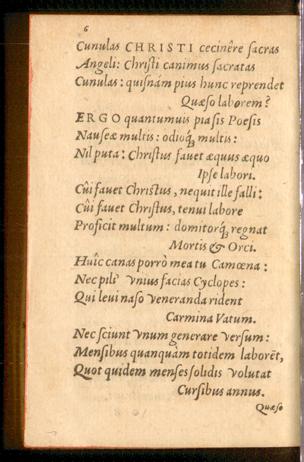 6
Cunulas CHRISTI cecinêre sacras
Angeli: Christi canimus sacratas
Cunulas: quisnám pius hunc reprendet
Quæso laborem?
ERGO quantumuis pia sis Poesis
Nauseæ multis: odioq́; multis:
Nil puta: Christus fauet æquus æquo
Ipse labori.
Cûi fauet Christus, nequit ille falli:
Cûi fauet Christus, tenui labore
Proficit multum: domitorq́; regnat
Mortis & Orci.
Huîc canas porrò mea tu Camœna:
Nec pili vnius facias Cyclopes:
Qui leui naso veneranda rident
Carmina Vatum.
Nec sciunt vnum generare versum:
Mensibus quanquàm totidem laborẽt,
Quot quidem menses solidis volutat
Cursibus annus.
Quæso